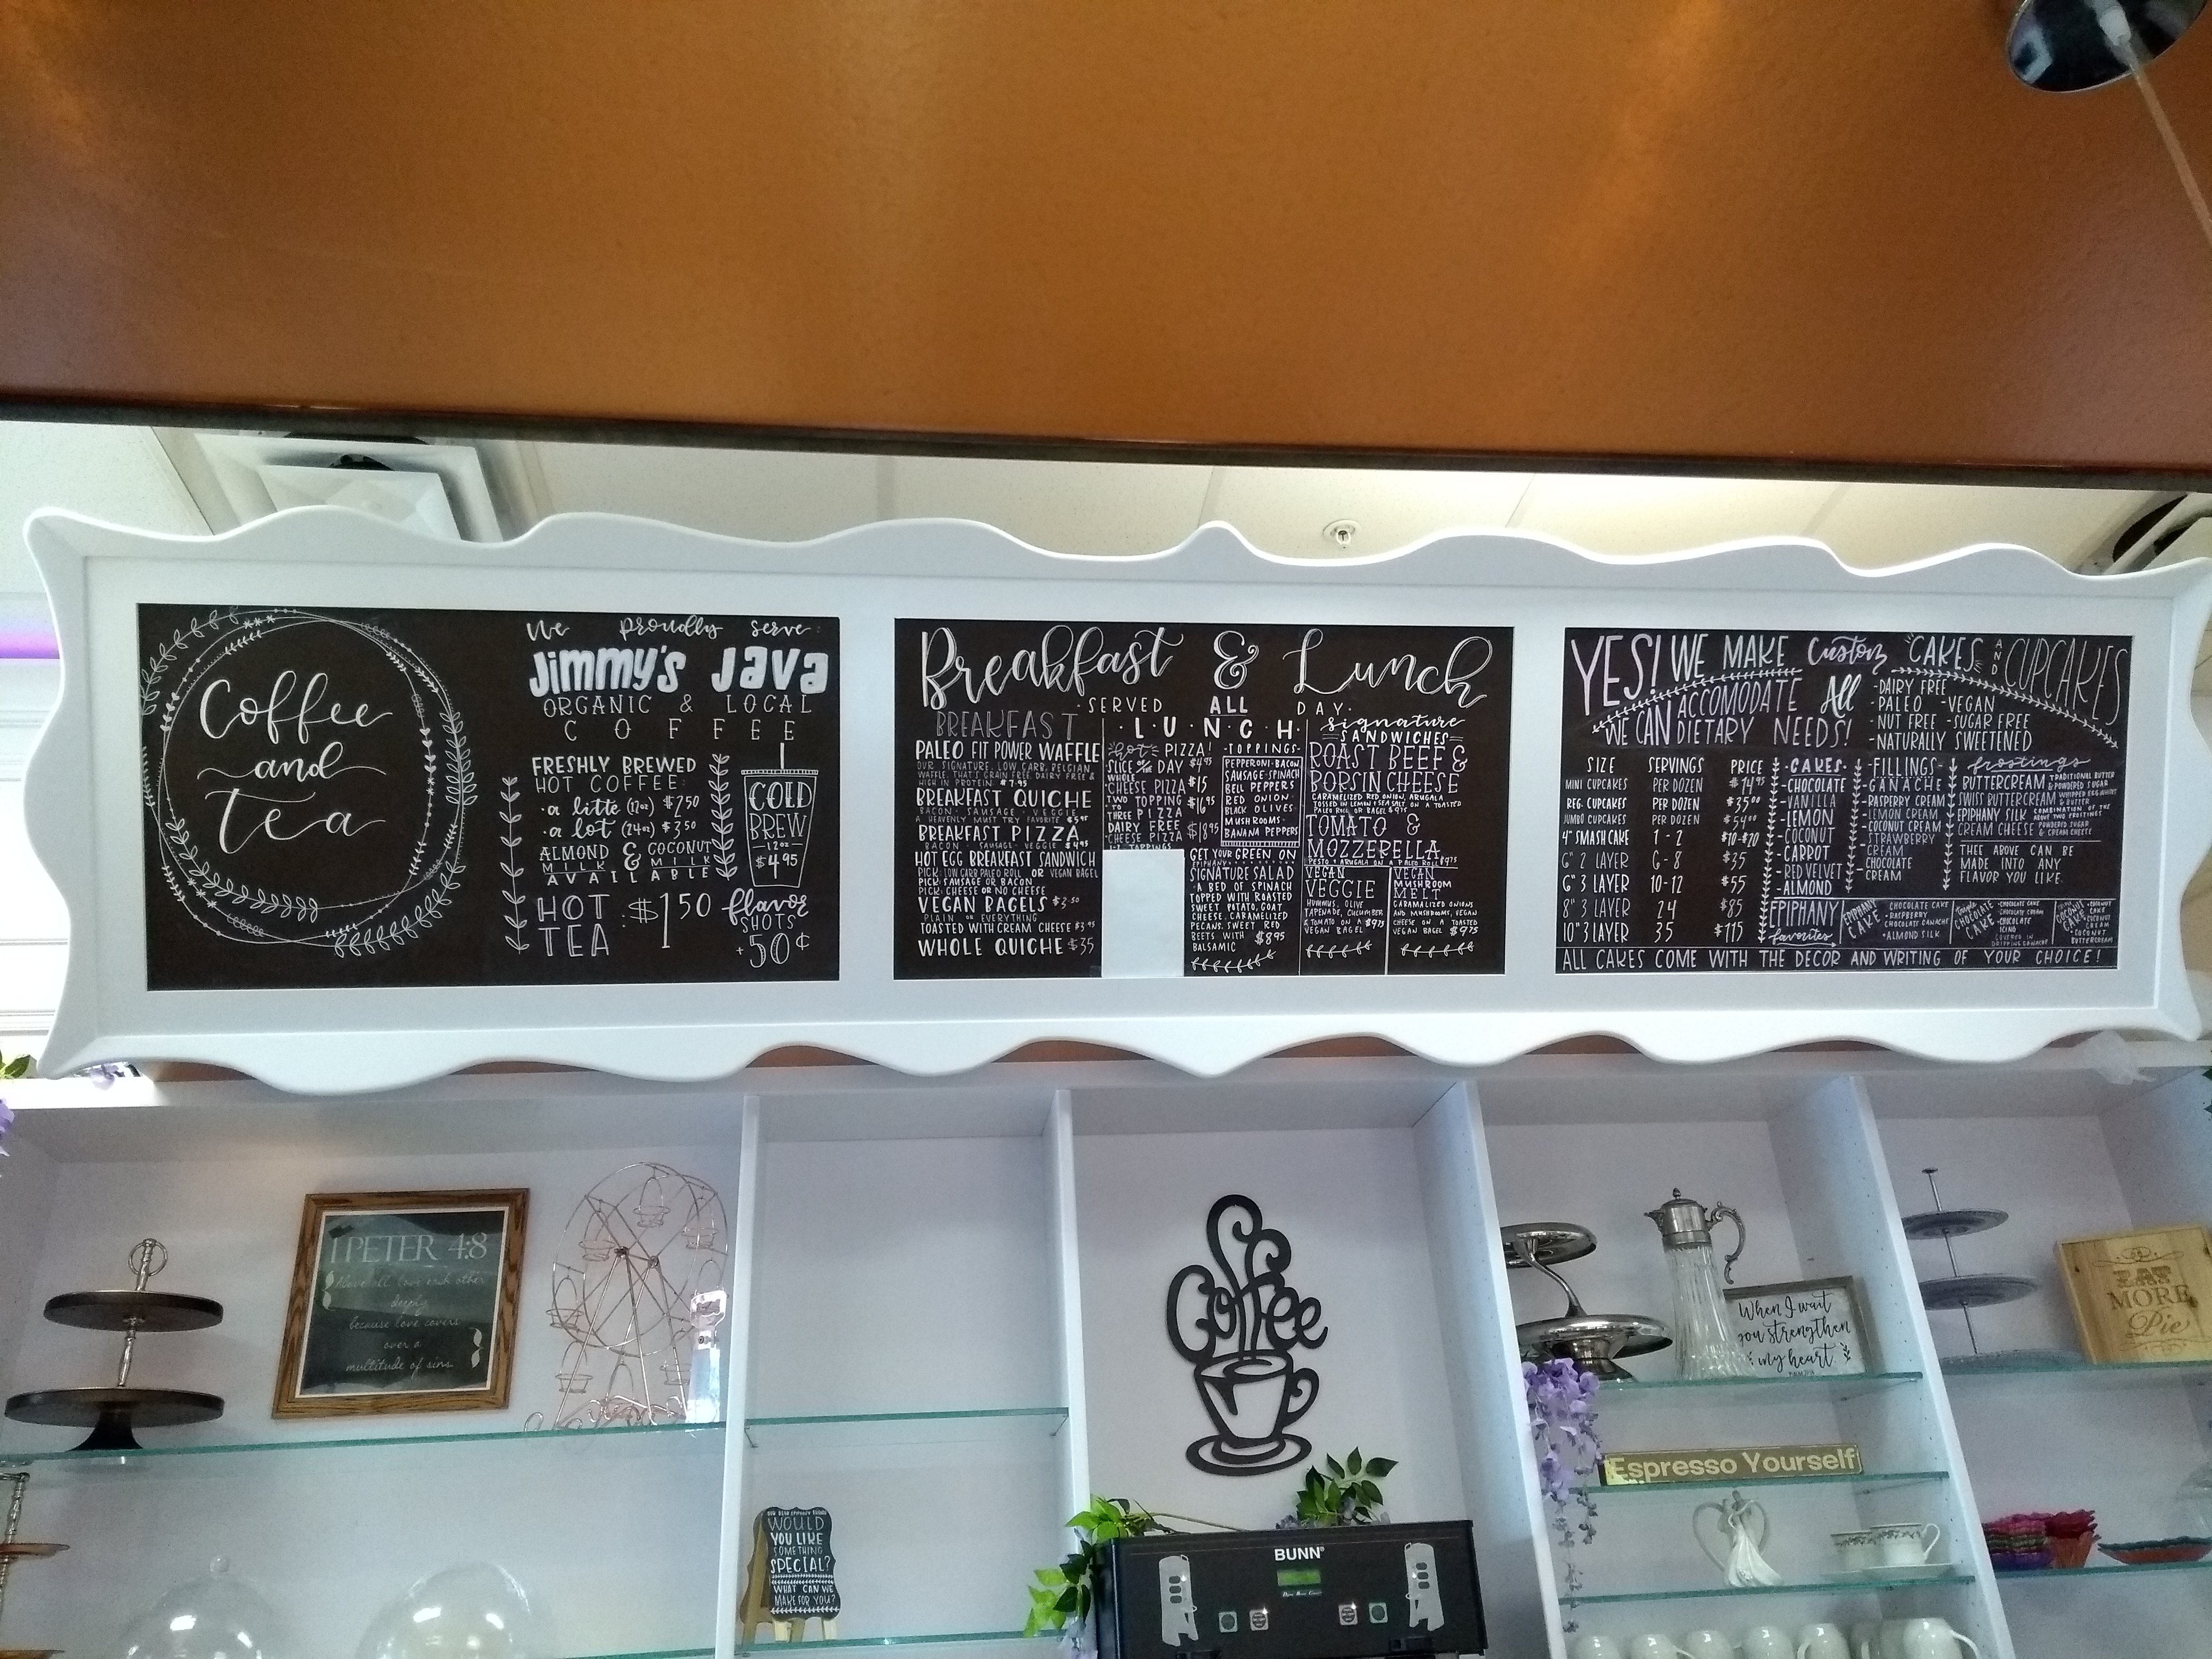 Coffee
and
Tea
We proudly serve:
Jimmy's Java
ORGANIC & LOCAL
COFFEE
FRESHLY BREWED
HOT COFFEE:
• a little (12oz) $2.50
• a lot (24oz) $3.50
ALMOND & COCONUT
MILK MILK
AVAILABLE
HOT
TEA : $1.50
COLD
BREW
12oz
$4.95
flavor
SHOTS
+50¢
Breakfast & Lunch
• SERVED ALL DAY •
BREAKFAST
PALEO FIT POWER WAFFLE
OUR SIGNATURE, LOW CARB, BELGIAN
WAFFLE, THAT'S GRAIN FREE, DAIRY FREE &
HIGH IN PROTEIN $7.95
BREAKFAST QUICHE
BACON • SAUSAGE • VEGGIE
A HEAVENLY MUST TRY FAVORITE $5.95
BREAKFAST PIZZA
BACON • SAUSAGE • VEGGIE $4.95
HOT EGG BREAKFAST SANDWICH
PICK: LOW CARB PALEO ROLL OR VEGAN BAGEL
PICK: SAUSAGE OR BACON
PICK: CHEESE OR NO CHEESE
VEGAN BAGELS $2.50
PLAIN OR EVERYTHING
TOASTED WITH CREAM CHEESE $3.95
WHOLE QUICHE $35
• LUNCH •
hot PIZZA!
SLICE OF THE DAY $4.95
WHOLE
CHEESE PIZZA $15
TWO TOPPING
THREE PIZZA
DAIRY FREE $18.95
CHEESE PIZZA
1-2 TOPPINGS
-TOPPINGS-
PEPPERONI • BACON
SAUSAGE • SPINACH
BELL PEPPERS
RED ONION •
BLACK OLIVES •
MUSHROOMS •
BANANA PEPPERS
GET YOUR GREEN ON
EPIPHANY
SIGNATURE SALAD
• A BED OF SPINACH
TOPPED WITH ROASTED
SWEET POTATO, GOAT
CHEESE, CARAMELIZED
PECANS, SWEET RED
BEETS WITH $8.95
BALSAMIC
signature
SANDWICHES
ROAST BEEF &
BORSIN CHEESE
CARAMELIZED RED ONION, ARUGALA
TOSSED IN LEMON & SEA SALT ON A TOASTED
PALEO ROLL OR BAGEL $9.75
TOMATO &
MOZZERELLA
PESTO & ARUGALA ON A PALEO ROLL $9.75
VEGAN
VEGGIE
HUMMUS, OLIVE
TAPENADE, CUCUMBER
& TOMATO ON A $9.75
VEGAN BAGEL
VEGAN
MUSHROOM
MELT
CARAMALIZED ONIONS
AND MUSHROOMS, VEGAN
CHEESE ON A TOASTED
VEGAN BAGEL $9.75
YES! WE MAKE Custom CAKES AND CUPCAKES
WE CAN ACCOMODATE All
DIETARY NEEDS!
-DAIRY FREE
-PALEO -VEGAN
-NUT FREE -SUGAR FREE
-NATURALLY SWEETENED
SIZE SERVINGS PRICE
MINI CUPCAKES PER DOZEN $14.95
REG. CUPCAKES PER DOZEN $35.00
JUMBO CUPCAKES PER DOZEN $54.00
4" SMASH CAKE 1-2 $10-$20
6" 2 LAYER 6-8 $35
6" 3 LAYER 10-12 $55
8" 3 LAYER 24 $85
10" 3 LAYER 35 $115
• CAKES •
-CHOCOLATE
-VANILLA
-LEMON
-COCONUT
-CARROT
-RED VELVET
-ALMOND
-FILLINGS-
-GANACHE
-RASPBERRY CREAM
-LEMON CREAM
-COCONUT CREAM
-STRAWBERRY
CREAM
-CHOCOLATE
CREAM
frostings
BUTTERCREAM TRADITIONAL BUTTER
& POWDERED SUGAR
SWISS BUTTERCREAM WHIPPED EGG WHITE
& BUTTER
EPIPHANY SILK COMBINATION OF THE
ABOVE TWO FROSTINGS
CREAM CHEESE POWDERED SUGAR
& CREAM CHEESE
THEE ABOVE CAN BE
MADE INTO ANY
FLAVOR YOU LIKE.
EPIPHANY
favorites
EPIPHANY
CAKE
CHOCOLATE CAKE
• RASPBERRY
CHOCOLATE GANACHE
• ALMOND SILK
Triple
CHOCOLATE
CAKE
• CHOCOLATE CAKE
• CHOCOLATE CREAM
• CHOCOLATE
ICING
COVERED IN
DRIPPING GANACHE
COCONUT
CAKE
• COCONUT
CAKE
• COCONUT
CREAM
• COCONUT
BUTTERCREAM
ALL CAKES COME WITH THE DECOR AND WRITING OF YOUR CHOICE!
1 PETER 4:8
Above all love each other
deeply
because love covers
over a
multitude of sins.
Coffee
When I wait
you strengthen
my heart
EAT
MORE
Pie
Espresso Yourself
WOULD
YOU LIKE
SOMETHING
SPECIAL?
WHAT CAN WE
MAKE FOR YOU?
BUNN